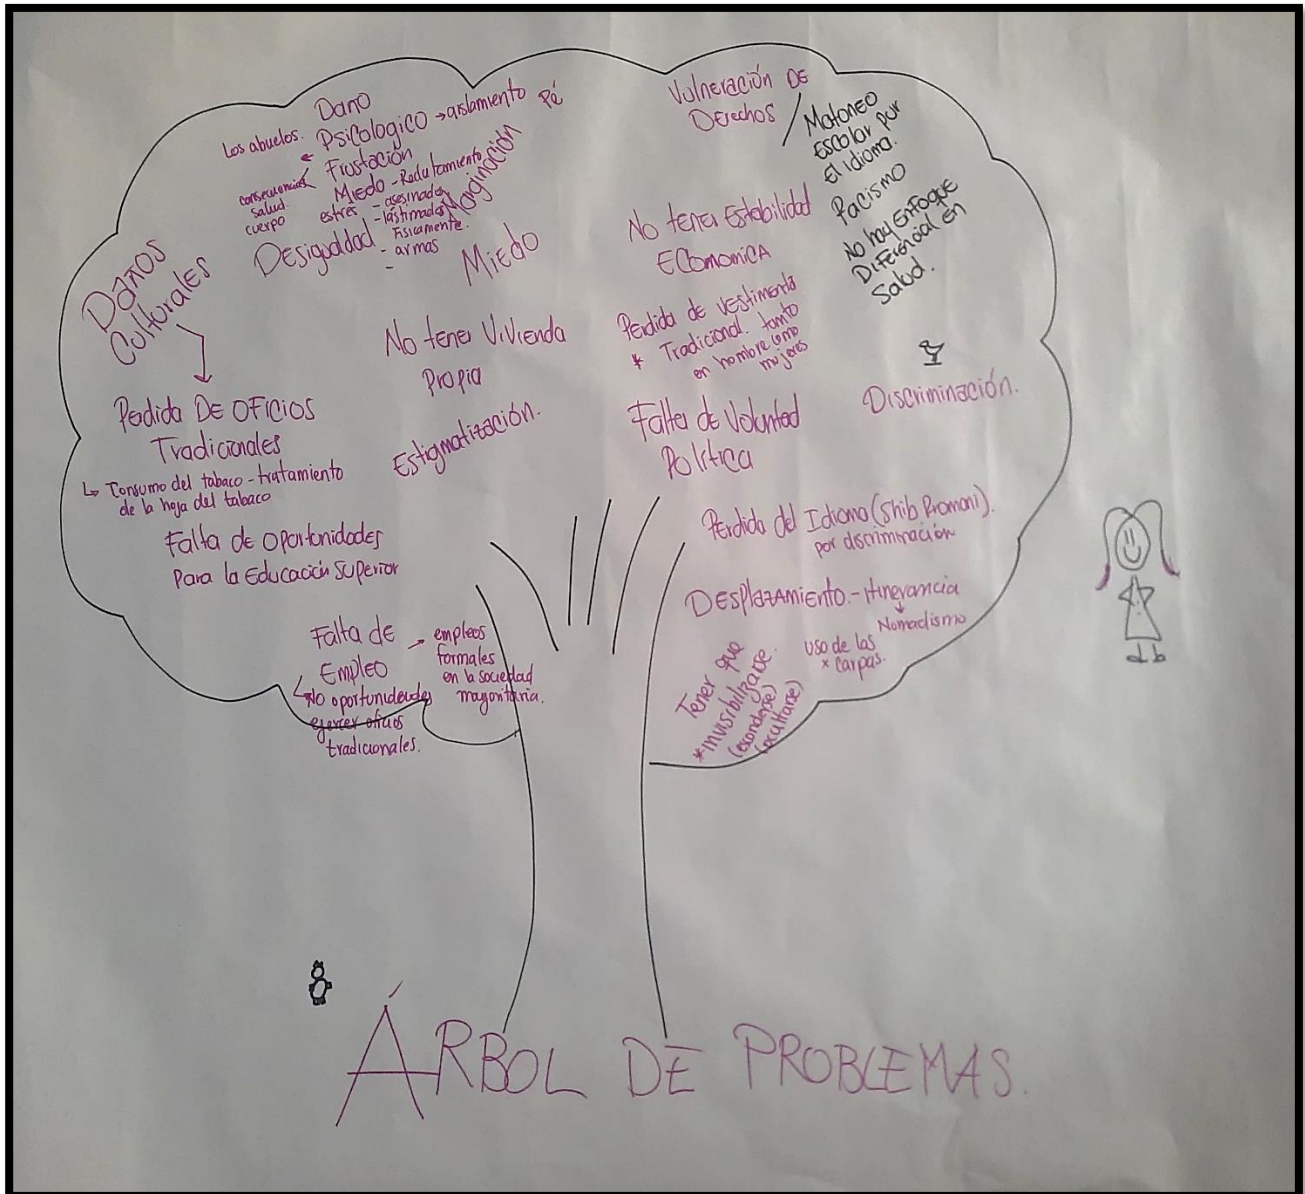 Daño
Los abuelos. Psicologico → aislamiento
Frustación
Miedo - Reclutamiento
consecuencias
salud
cuerpo
estres - asesinados
- lástimados
Fisicamente.
- armas
-
Marginación
Desigualdad
Miedo
Daños
Culturales
Perdida De Oficios
Tradicionales
↳ Consumo del tabaco - tratamiento
de la hoja del tabaco
Falta de oportunidades
Para la Educación Superior
Falta de
Empleo
→ empleos
formales
en la sociedad
mayoritaria.
No oportunidades
ejercer oficios
tradicionales.
No tener Vivienda
Propia
Estigmatización.
Vulneración De
Derechos
Matoneo
Escolar por
El idioma.
Racismo
No hay Enfoque
Diferencial en
Salud.
No tener Estabilidad
Economica
Perdida de Vestimenta
* Tradicional. tanto
en hombre como
mujeres
Falta de Voluntad
Política
Discriminación.
Perdida del Idioma (Shib Rromani).
por discriminación
Desplazamiento. - Itinerancia
Nomadismo
uso de las
* carpas.
Tener que
*invisibilizarse.
(esconderse)
(ocultarse)
ÁRBOL DE PROBLEMAS.